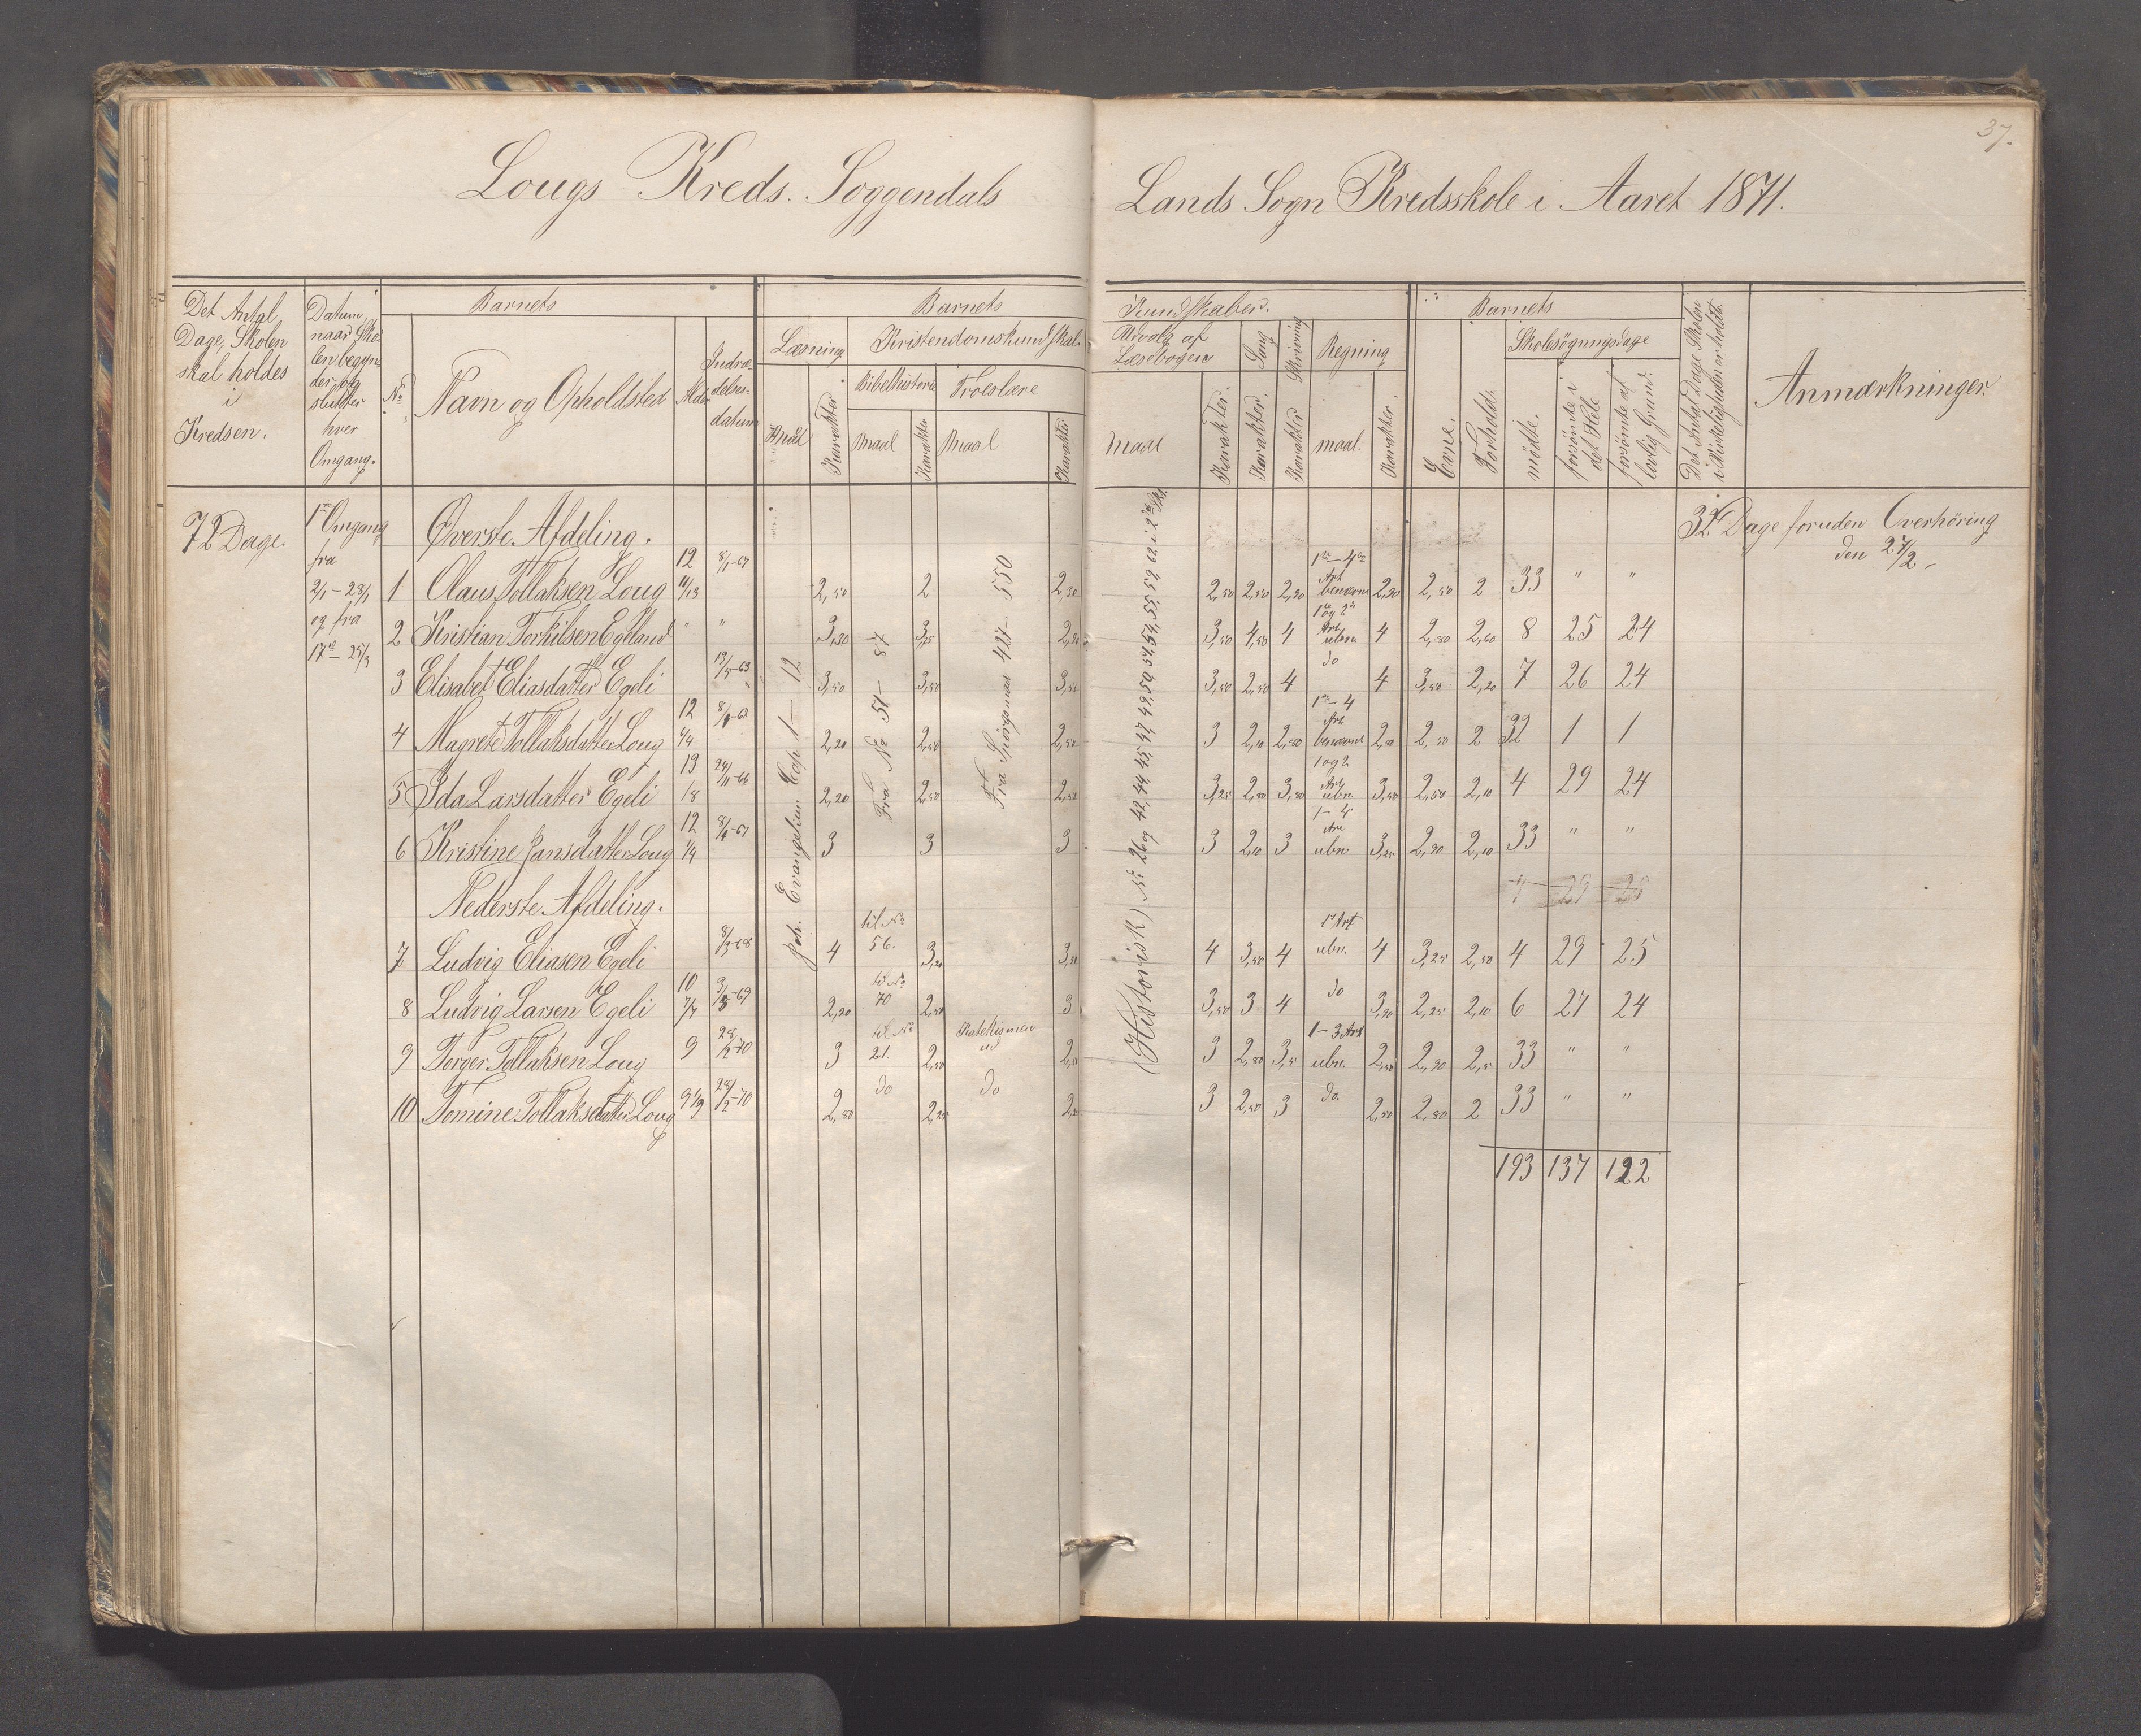 37.
Lougs Kreds. Soggendals Lands Sogn Kredsskole i Aaret 1871.
Det Antal Dage, Skolen skal holdes i Kredsen.
Datum, naar Skolen begynder og slutter hver Omgang.
Barnets
No
Navn og Opholdsted
Alder
Indtrædelsesdatum
Barnets Kundskaber.
Læsning
Maal
Karakter
Kristendomskundskab
Bibelhistorie
Maal
Karakter
Troeslære
Maal
Karakter
Udvalg af Læsebogen
Maal
Karakter.
Sang
Karakter.
Skrivning
Karakter
Regning
maal.
Karakter.
Barnets
Evne.
Forhold.
Skolesögningsdage
mödte.
forsömte i det Hele
forsömte af lovlig Grund.
Det Antal Dage Skolen i Virkeligheden er holdt.
Anmærkninger.
72 Dage.
1ste Omgang
fra
2/1 – 28/1
og fra
17 – 25/3
Øverste Afdeling.
32 Dage foruden Overhöring
den 27/2
Joh. Evangelium Cap 1 – 12
Fra No 51 – 87
Fra Spörgsmaal 427 – 550
(Historisk) No 26 og 42, 44, 45, 47, 49, 50
1 Olaus Tollaksen Loug 12 11/13 8/1-67 2,50 2 2,30 2,50 2,50 2,30 1ste – 4de Art benævnt 2,30 2,50 2 33 " "
2 Kristian Torkilsen Egeland " " 3,30 3,25 2,30 3,50 4,50 4 1 og 2 Art ubn. 4 2,80 2,60 8 25 24
3 Elisabet Eliasdatter Egeli 13/5-63 3,50 3,50 3,50 3,50 2,50 4 do 4 3,50 2,20 7 26 24
4 Magrete Tollaksdatter Loug 12 2,20 2,50 2,50 3 2,10 2,80 1ste – 4 Art benævnt 2,80 2,50 2 32 1 1
5 Ida Larsdatter Egeli 13 24/11-66 2,20 2,50 2,50 3,25 2,50 3,50 1 og 2 Art ubn. 3,50 2,50 2,10 4 29 24
6 Kristine Jansdatter Loug 12 1/4 3 3 3 3 2,10 3 1 – 4 Art ubn. 3,25 2,30 2,10 33 " "
Nederste Afdeling.
4 29 25
7 Ludvig Eliasen Egeli 8/3-68 4 til No 56. 3,20 3,50 4 3,50 4 1 Art ubn. 4 3,25 2,50 4 29 25
8 Ludvig Larsen Egeli 10 7/7 2,20 til No 70 2,50 3 3,50 3 4 do 3,30 2,25 2,10 6 27 24
9 Torger Tollaksen Loug 9 28/2-70 3 til No 21. 2,50 Katekismen ud 2,50 3 2,50 3,5 1 – 3 Art ubn. 2,50 2,30 2,5 33 " "
10 Tomine Tollaksdatter Loug 9 1/9 28/2-70 2,80 do 2,25 do 3 2,50 3 do. 2,50 2,80 2 33 " "
193 137 122